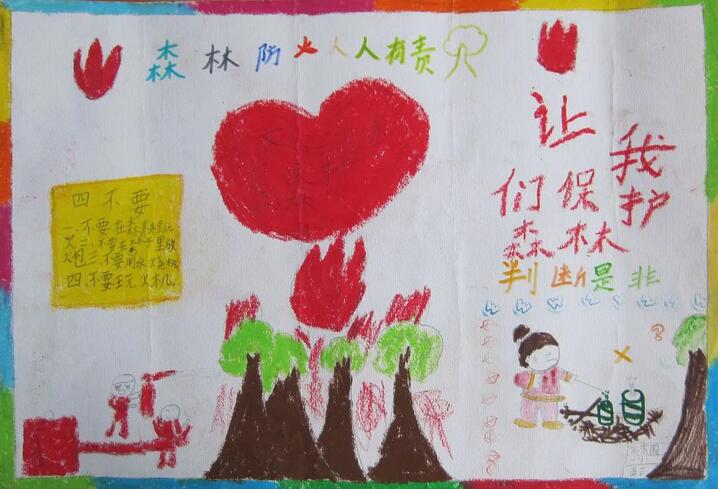 森林防火人人有责
让我
们保护
森林
判断是非
四不要
一、不要在森林里玩
火二、不要在林子里放
火炮三、不要用火烧
四、不要玩火机